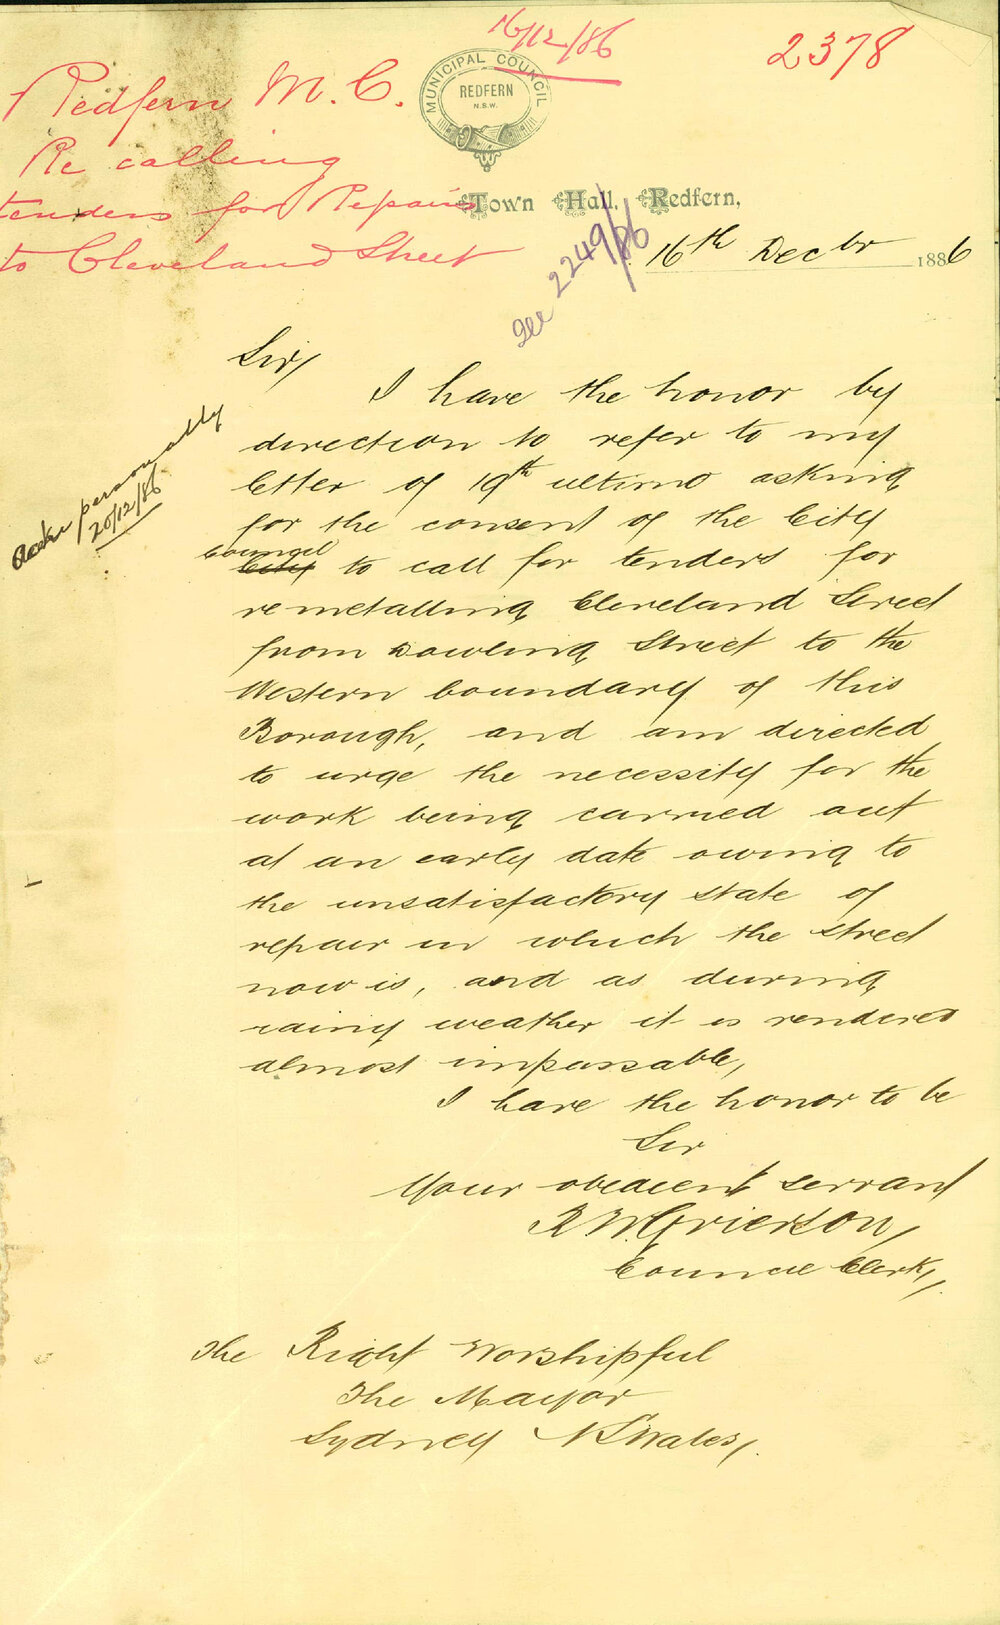 16/12/86
2378
Redfern M. C.
Re calling
tenders for Repairs
to Cleveland Street
MUNICIPAL COUNCIL
REDFERN
N.S.W.
Town Hall, Redfern,
see 2249/86
16th Decbr 1886
Sir,
I have the honor by
direction to refer to my
letter of 19th ultimo asking
for the consent of the City
Council
City to call for tenders for
remetalling Cleveland Street
from Dowling Street to the
Western boundary of this
Borough, and am directed
to urge the necessity for the
work being carried out
at an early date owing to
the unsatisfactory state of
repair in which the street
now is, and as during
rainy weather it is rendered
almost impassable,
I have the honor to be
Sir
Your obedient servant
R W Grierson,
Council Clerk,
The Right Worshipful
The Mayor
Sydney N S Wales,
personally
20/12/86